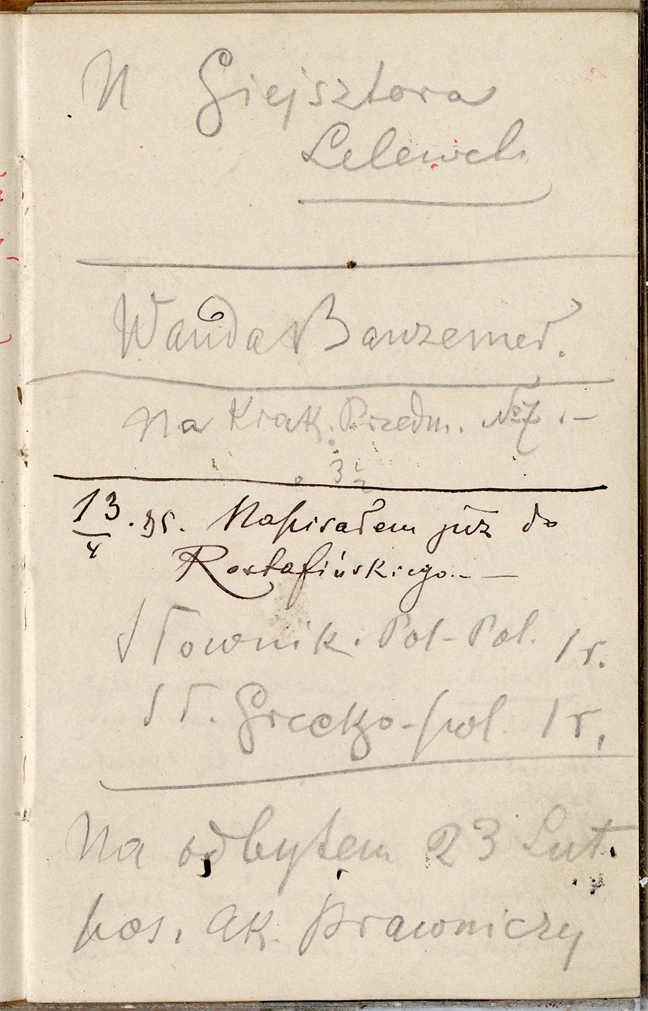 U Giejsztora
Lelewel
Wanda Banzemer.
Na Krak. Przedm. No 7. —
3 1/2
13/4 85. Napisałem już do
Rostafińskiego. —
Słownik. Pol-
1 r.
Sł. Grecko-pol 1 r.
Na odbytem 23 Lut.
pos. Ak. Prawniczy